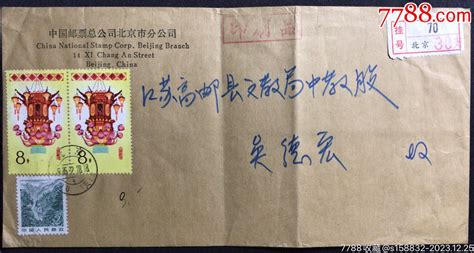 7788.com
中国邮票总公司北京市分公司
China National Stamp Corp. Beijing Branch
14 XI Chang An Street
Beijing, China
印刷品
挂号
70
北京
江苏高邮县文教局中教股
吴德宏 收
8分
8分
中国人民邮政
7788收藏@s158832-2023.12.25